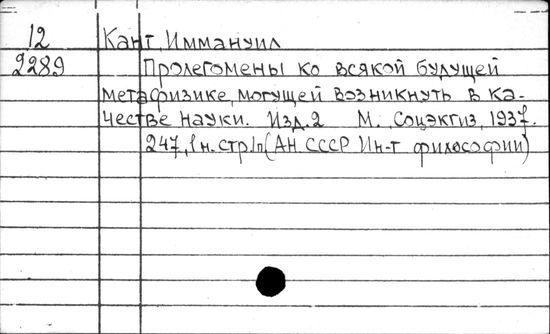 12 Кант, Иммануил
2289 Пролегомены ко всякой будущей
метафизике, могущей возникнуть в ка-
честве науки. Изд. 2 М., Соцэкгиз, 1937.
247, 1 н. стр. (АН СССР Ин-т философии)